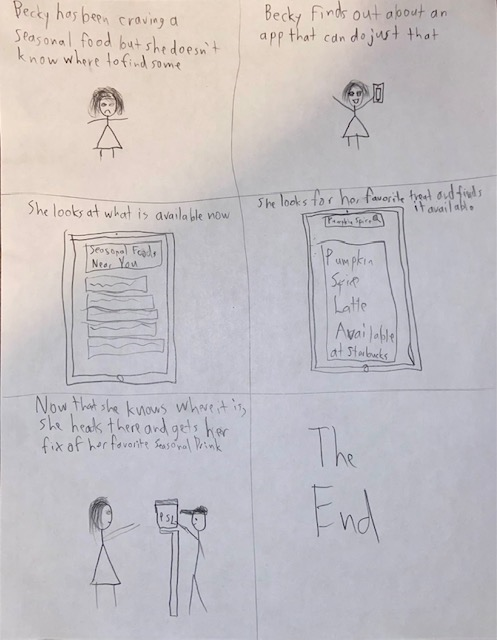 Becky has been craving a
seasonal food but she doesn't
know where to find some
Becky finds out about an
app that can do just that
She looks at what is available now
Seasonal Foods
Near You
She looks for her favorite treat and finds
it available.
Pumpkin Spice
Pumpkin
Spice
Latte
Available
at Starbucks
Now that she knows where it is,
she heads there and gets her
fix of her favorite seasonal Drink
PSL
The
End